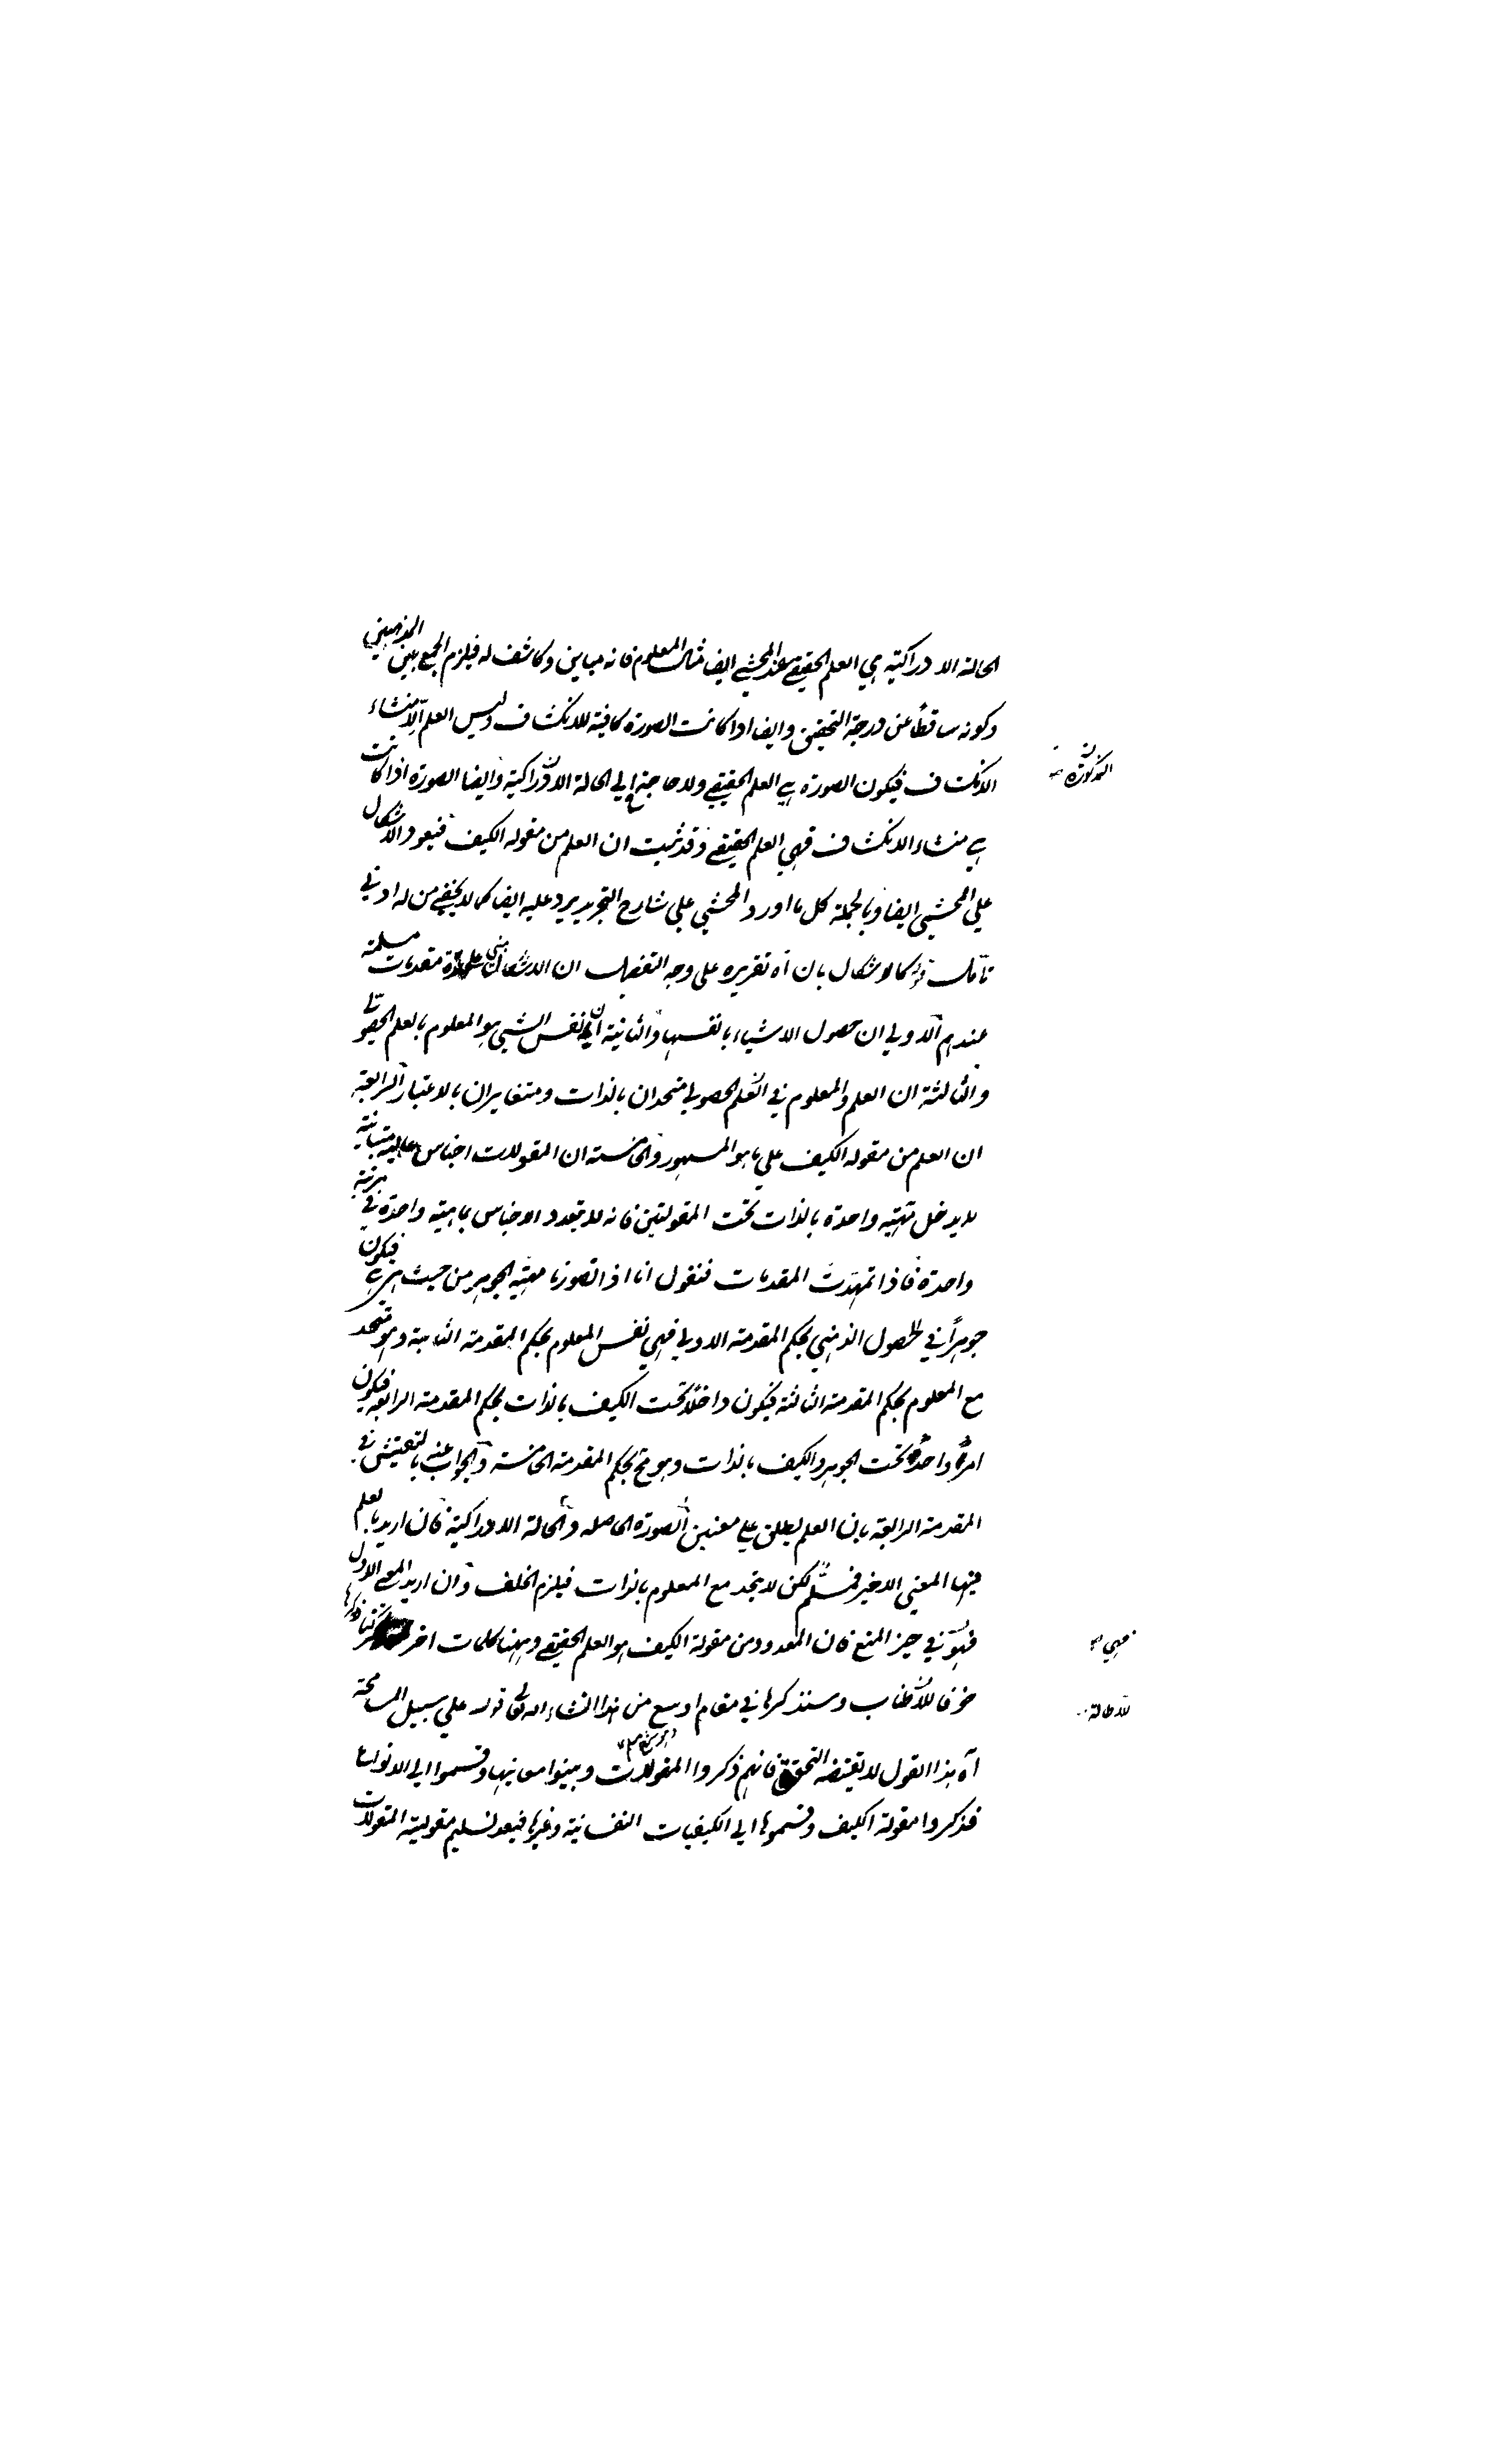 الحالة الادراكية هي العلم الحقيقي عند المحشي ايضا مثال المعلوم فانه مباين وكاشف له فيلزم الجمع بين المذهبين
وكونه ساقطا عن درجة التحقيق وايضا اذا كانت الصورة كافية للانكشاف وليس العلم الا منشاء
الانكشاف فيكون الصورة هي العلم الحقيقي ولا حاجة الي الحالة الادراكية وايضا الصورة اذا كانت
المذكورة
هي منشاء الانكشاف فهي العلم الحقيقي وقد ثبت ان العلم من مقولة الكيف فيعود الاشكال
علي المحشي ايضا وبالجملة كل ما اورد المحشي علي شارح التجريد يرد عليه ايضا كما لا يخفي من له ادني
تأمل قوله كالاشكال بان آه تقريره علي وجه التفصيل ان الاشكال مبني علي مقدمات مسلمة
عندهم الاولي ان حصول الاشياء بانفسها والثانية ان نفس الشيء هو المعلوم بالعلم الحصولي
والثالثة ان العلم والمعلوم في العلم الحصولي متحدان بالذات ومتغايران بالاعتبار الرابعة
ان العلم من مقولة الكيف علي ما هو المشهور والخامسة ان المقولات اجناس عالية متباينة
لا يدخل مهية واحدة بالذات تحت المقولتين فانه لا يتعدد الاجناس بماهية واحدة في مرتبة
واحدة فاذا تمهدت المقدمات فنقول انا اذا تصورنا مهية الجوهر من حيث هي هي فيكون
جوهرا في الحصول الذهني بحكم المقدمة الاولي فهي نفس المعلوم بحكم المقدمة الثانية وهو متحد
مع المعلوم بحكم المقدمة الثالثة فيكون داخلا تحت الكيف بالذات بحكم المقدمة الرابعة فيكون
امر واحد تحت الجوهر والكيف بالذات وهو مح بحكم المقدمة الخامسة والجواب عنه بالتفتيش في
المقدمة الرابعة بان العلم يطلق علي معنيين الصورة الحاصلة والحالة الادراكية فان اريد بالعلم
فيها المعني الاخير فمسلم لكن لا يتحد مع المعلوم بالذات فيلزم الخلف وان اريد المعني الاول
فهو في حيز المنع فان المعدود من مقولة الكيف هو العلم الحقيقي وههنا كلمات اخر تركنا ذكرها
فهي
خوفا للاطناب وسنذكرها في مقام اوسع من هذا انشاء الله تعالي قوله علي سبيل المسامحة
للاطالة
آه هذا القول لا يقتضيه التحقيق فانهم ذكروا المقولات وبينوا معانيها وقسموا الي الانواع
فذكروا مقولة الكيف وقسموها الي الكيفيات النفسانية وغيرها فبعد تسليم مقولية المقولات